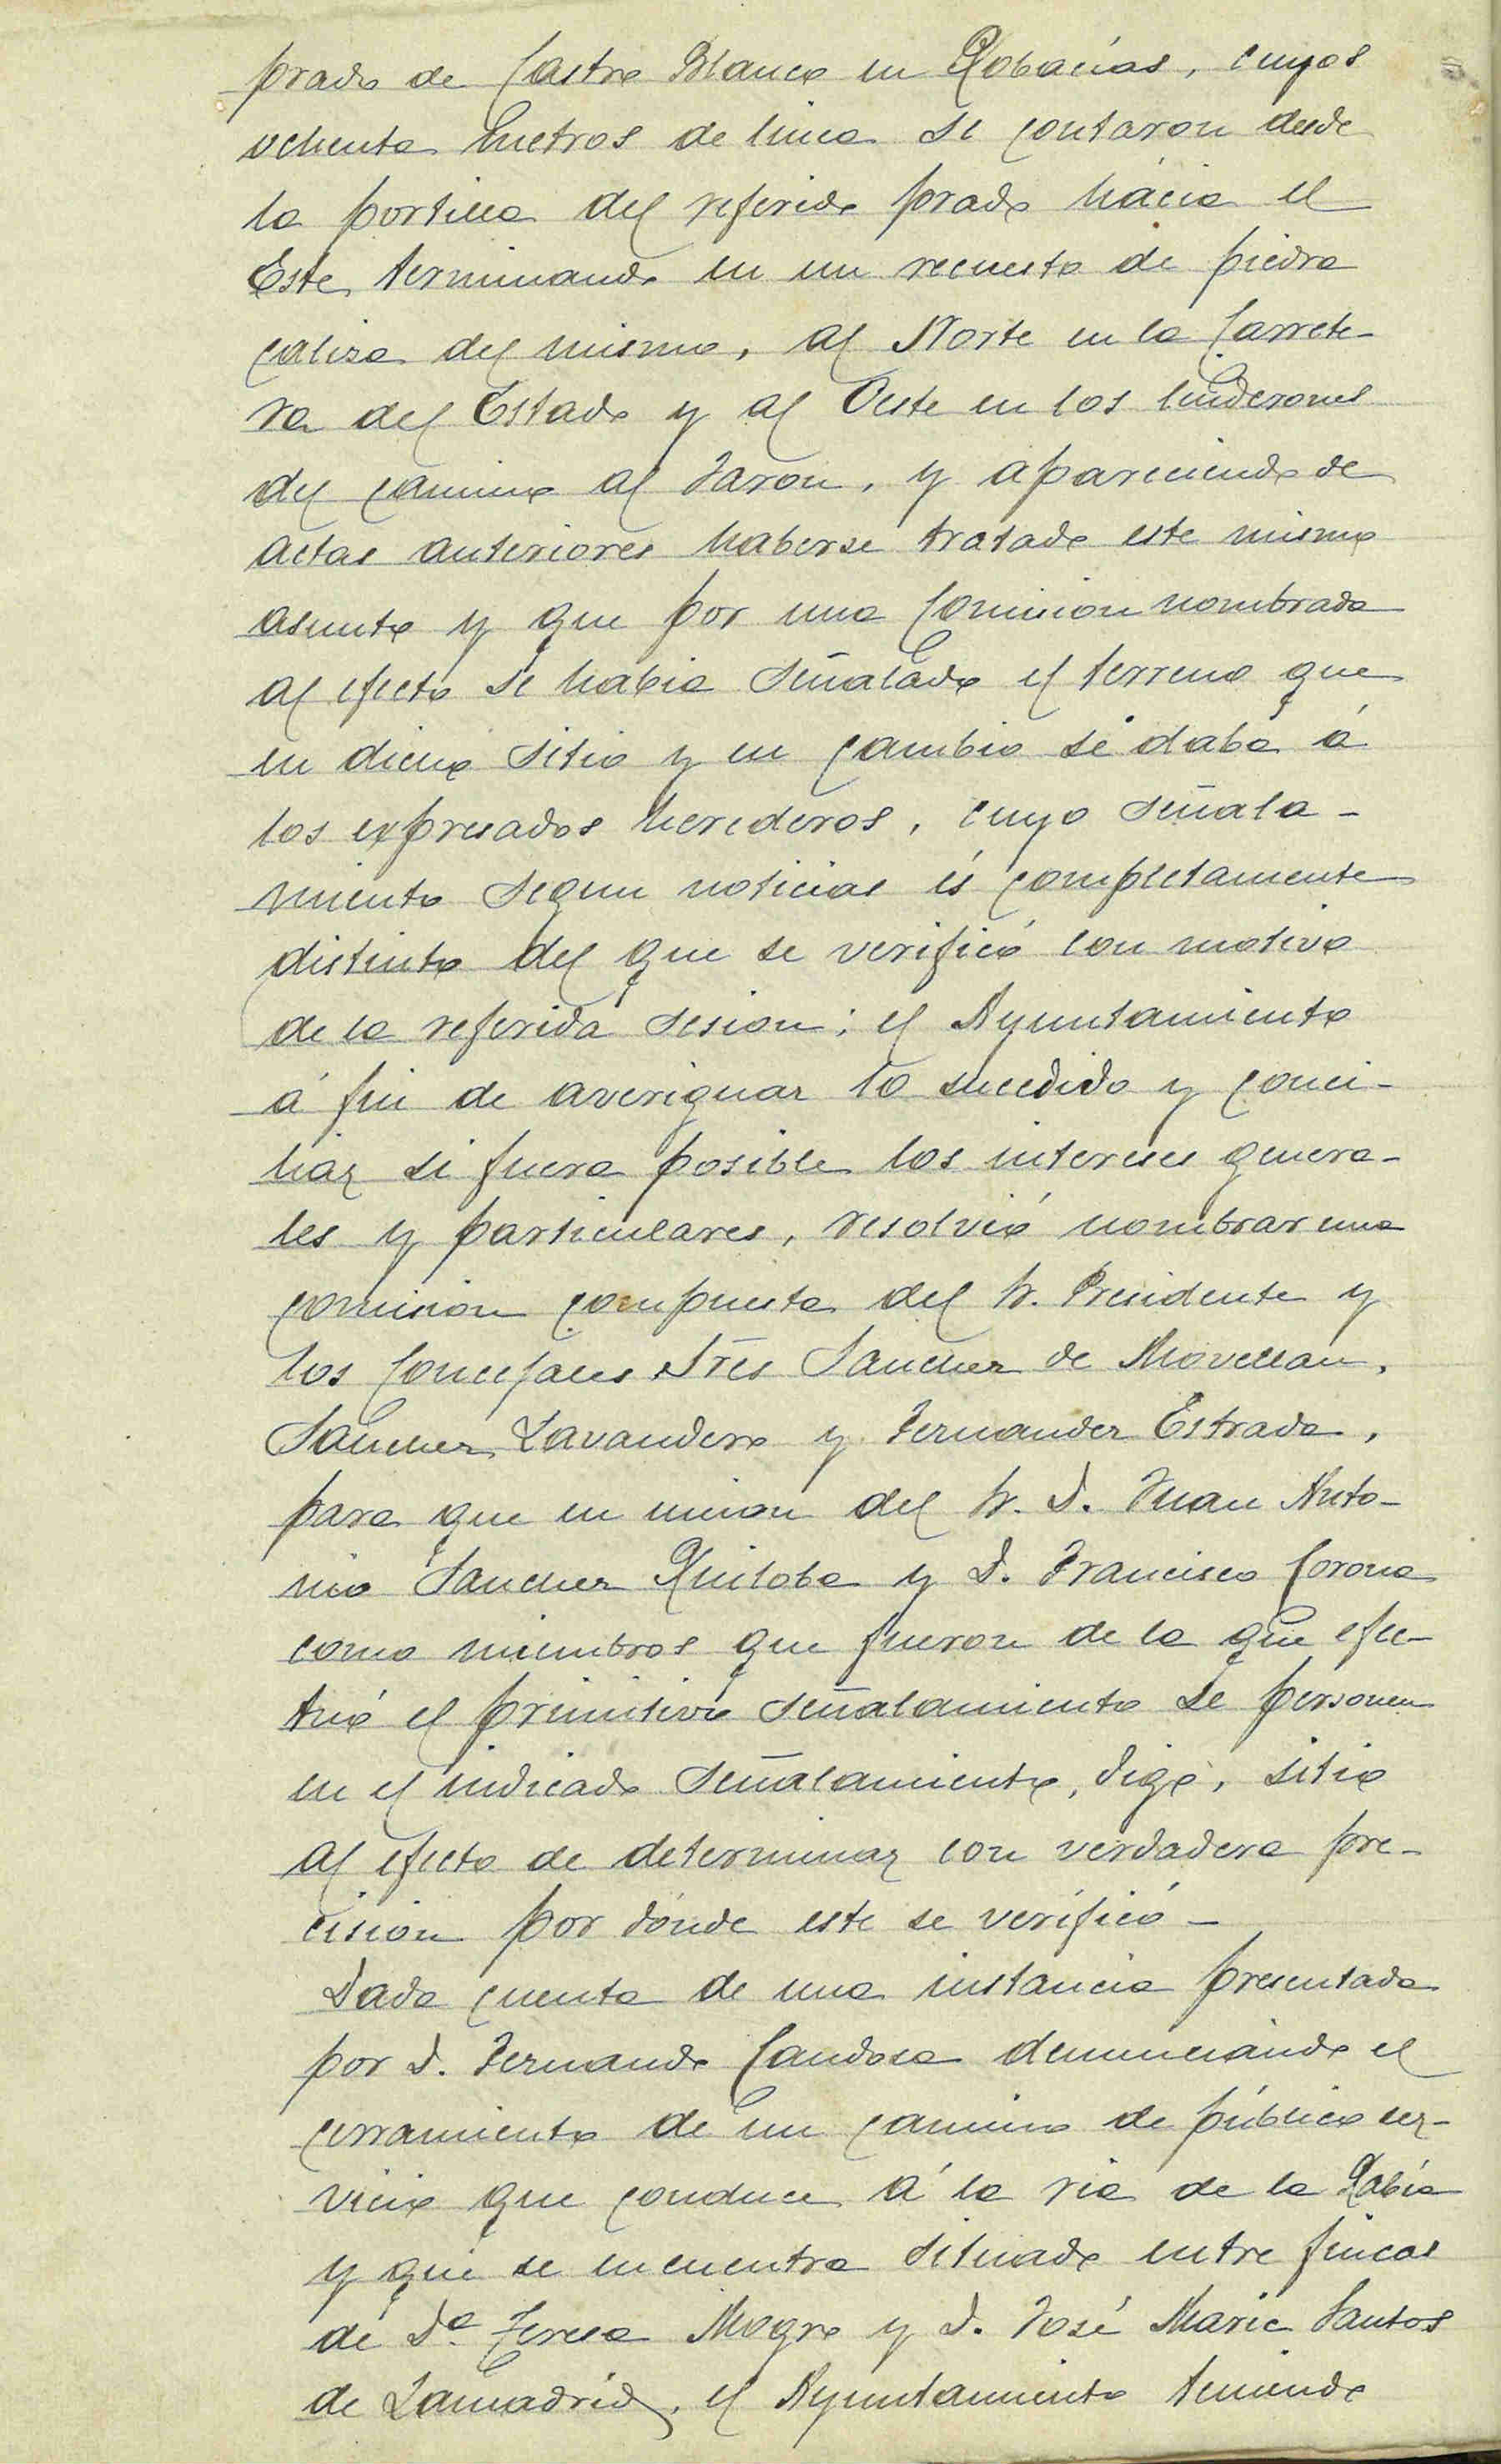 prado de Castro Blanco en Robacías, cuyos
ochenta metros de linea se contaron desde
la portilla del referido prado hácia el
Este, terminando en un recuesto de piedra
caliza del mismo, al Norte en la Carrete-
ra del Estado y al Oeste en los linderones
del camino al Jaron, y apareciendo de
actas anteriores haberse tratado este mismo
asunto y que por una Comision nombrada
al efecto se habia señalado el terreno que
en dicho sitio y en cambio se daba á
los expresados herederos, cuyo señala-
miento segun noticias és completamente
distinto del que se verificó con motivo
de la referida sesion; el Ayuntamiento
á fin de averiguar lo sucedido y conci-
liar si fuera posible los intereses genera-
les y particulares, resolvió nombrar una
comision compuesta del Sr. Presidente y
los Concejales Sres Sanchez de Movellan,
Sanchez Lavandero y Fernandez Estrada,
para que en union del Sr. D. Juan Anto-
nio Sanchez Quiloba y D. Francisco Corona
como miembros que fueron de la que efec-
tuó el primitivo señalamiento se personen
en el indicado señalamiento, digo, sitio
al efecto de determinar con verdadera pre-
cision por dónde este se verificó -
Dada cuenta de una instancia presentada
por D. Fernando Candosa denunciando el
cerramiento de un camino de público ser-
vicio que conduce á la ria de la Rabia
y que se encuentra situado entre fincas
de Dª Teresa Mogro y D. José Maria Santos
de Lamadrid, el Ayuntamiento teniendo